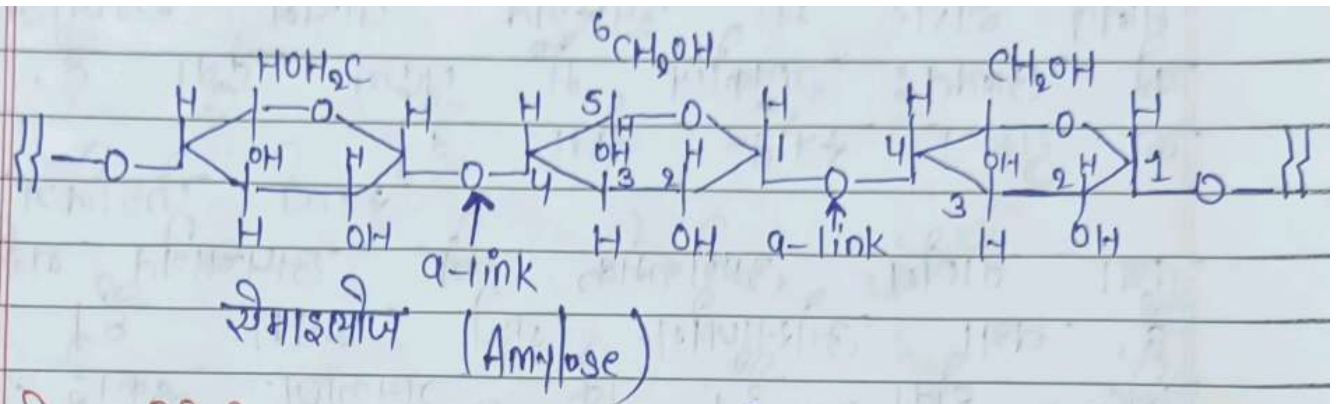 HOH₂C ⁶CH₂OH CH₂OH
H O H H 5 O H H O H
O OH H O 4 H OH 3 H 2 1 O 4 OH 3 H 2 1 O
H OH H OH H OH
α-link α-link
ऐमाइलोज (Amylose)